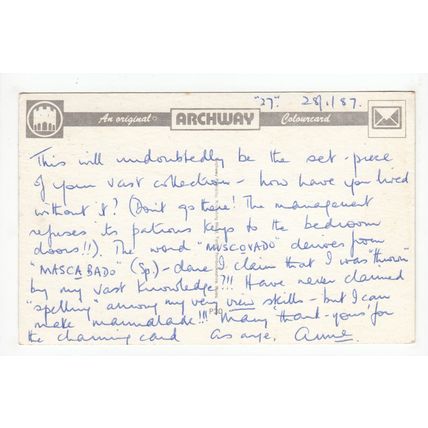 "27". 28/1/87.
An original ARCHWAY Colourcard
This will undoubtedly be the set-piece
of your vast collection - how have you lived
without it? (Don't go there! The management
refuses its patrons keys to the bedroom
doors!!). The word "MUSCOVADO" derives from
"MASCABADO" (Sp.) - dare I claim that I was "thrown"
by my vast knowledge?!! Have never claimed
"spelling" among my very view skills - but I can
make marmalade!!! Many thank-yous for
the charming card as aye. Anne